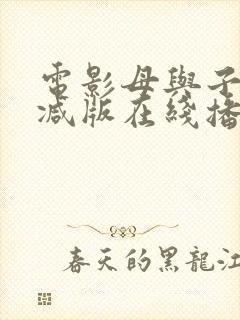 電影母與子
減版在綫播
春天的黑龍江